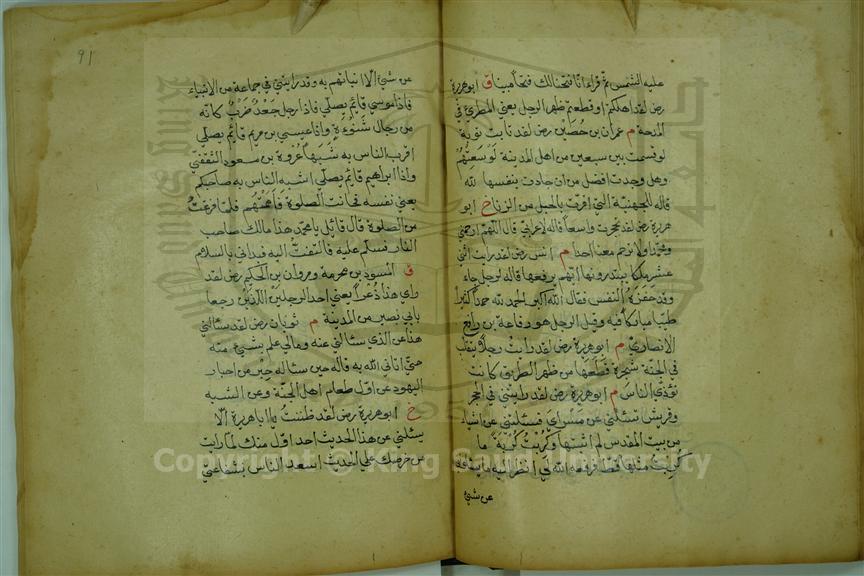 عليه الشمس ثم قراء انا فتحنا لك فتحا مبينا ق ابو هريرة
رض لقد اهلكتم او قطعتم ظهر الرجل يعني المطري في
المدحة م عمران بن حصين رض لقد تابت توبة
لو قسمت بين سبعين من اهل المدينة لوسعتهم
وهل وجدت افضل من ان جادت بنفسها لله
قاله للجهنية التي اقرت بالحبل من الزنا خ ابو
هريرة رض لقد تحجرت واسعا قاله لاعرابي قال اللهم ارحمني
ومحمدا ولا ترحم معنا احدا م انس رض لقد رايت اثني
عشر ملكا يبتدرونها ايهم يرفعها قاله لرجل جاء
وقد حفزه النفس فقال الله اكبر الحمد لله حمدا كثيرا
طيبا مباركا فيه وقيل الرجل هو رفاعة بن رافع
الانصاري م ابو هريرة رض لقد رايت رجلا يتقلب
في الجنة شجرة قطعها من ظهر الطريق كانت
تؤذي الناس م ابو هريرة رض لقد رايتني في الحجر
وقريش تسئلني عن مسراي فسئلتني عن اشياء
من بيت المقدس لم اثبتها وكربت كربة ما
كربت مثلها قط فرفعه الله لي انظر اليه ما يسئلوني
عن شئ
91
عن شئ الا انباتهم به وقد رايتني في جماعة من الانبياء
فاذا موسى قائم يصلي فاذا رجل جعد ضرب كانه
من رجال شنوءة واذا عيسى بن مريم قائم يصلي
اقرب الناس به شبها عروة بن مسعود الثقفي
واذا ابراهيم قائم يصلي اشبه الناس به صاحبكم
يعني نفسه فحانت الصلوة فاممتهم فلما فرغت
من الصلوة قال قائل يا محمد هذا مالك صاحب
النار فسلم عليه فالتفت اليه فبداني بالسلام
ق المسور بن مخرمة ومروان بن الحكم رض لقد
راي هذا ذعرا يعني احد الرجلين اللذين رجعا
بابي بصير من المدينة م ثوبان رض لقد سئالني
هذا عن الذي سئالني عنه ومالي علم بشيء منه
حتى اتاني الله به قاله حين ساله حبر من احبار
اليهود عن اول طعام اهل الجنة وعن الشبه
خ ابو هريرة رض لقد ظننت يا ابا هريرة الا
يسئلني عن هذا الحديث احد اول منك لما رايت
من حرصك على الحديث اسعد الناس بشفاعتي
Copyright © King Saud University